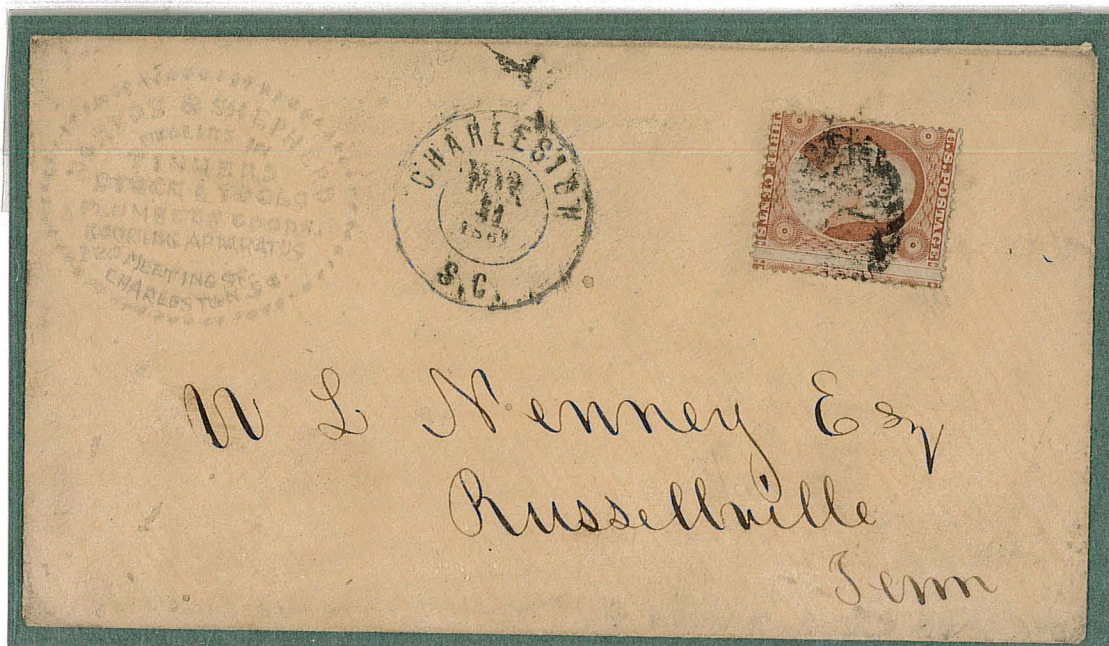 & SHEPHERD
DEALERS IN
TINNERS
STOCK & TOOLS
PLUMBERS GOODS,
COOKING APPARATUS
MEETING ST
CHARLESTON S C
CHARLESTON
MAR
S.C.
U.S. POSTAGE
THREE CENTS
W L Nenney Esq
Russellville
Tenn